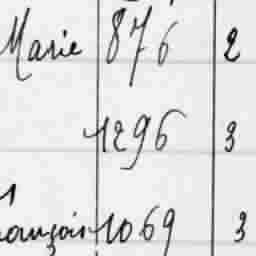 Marie 876 2
1296 3
ançois 1069 3